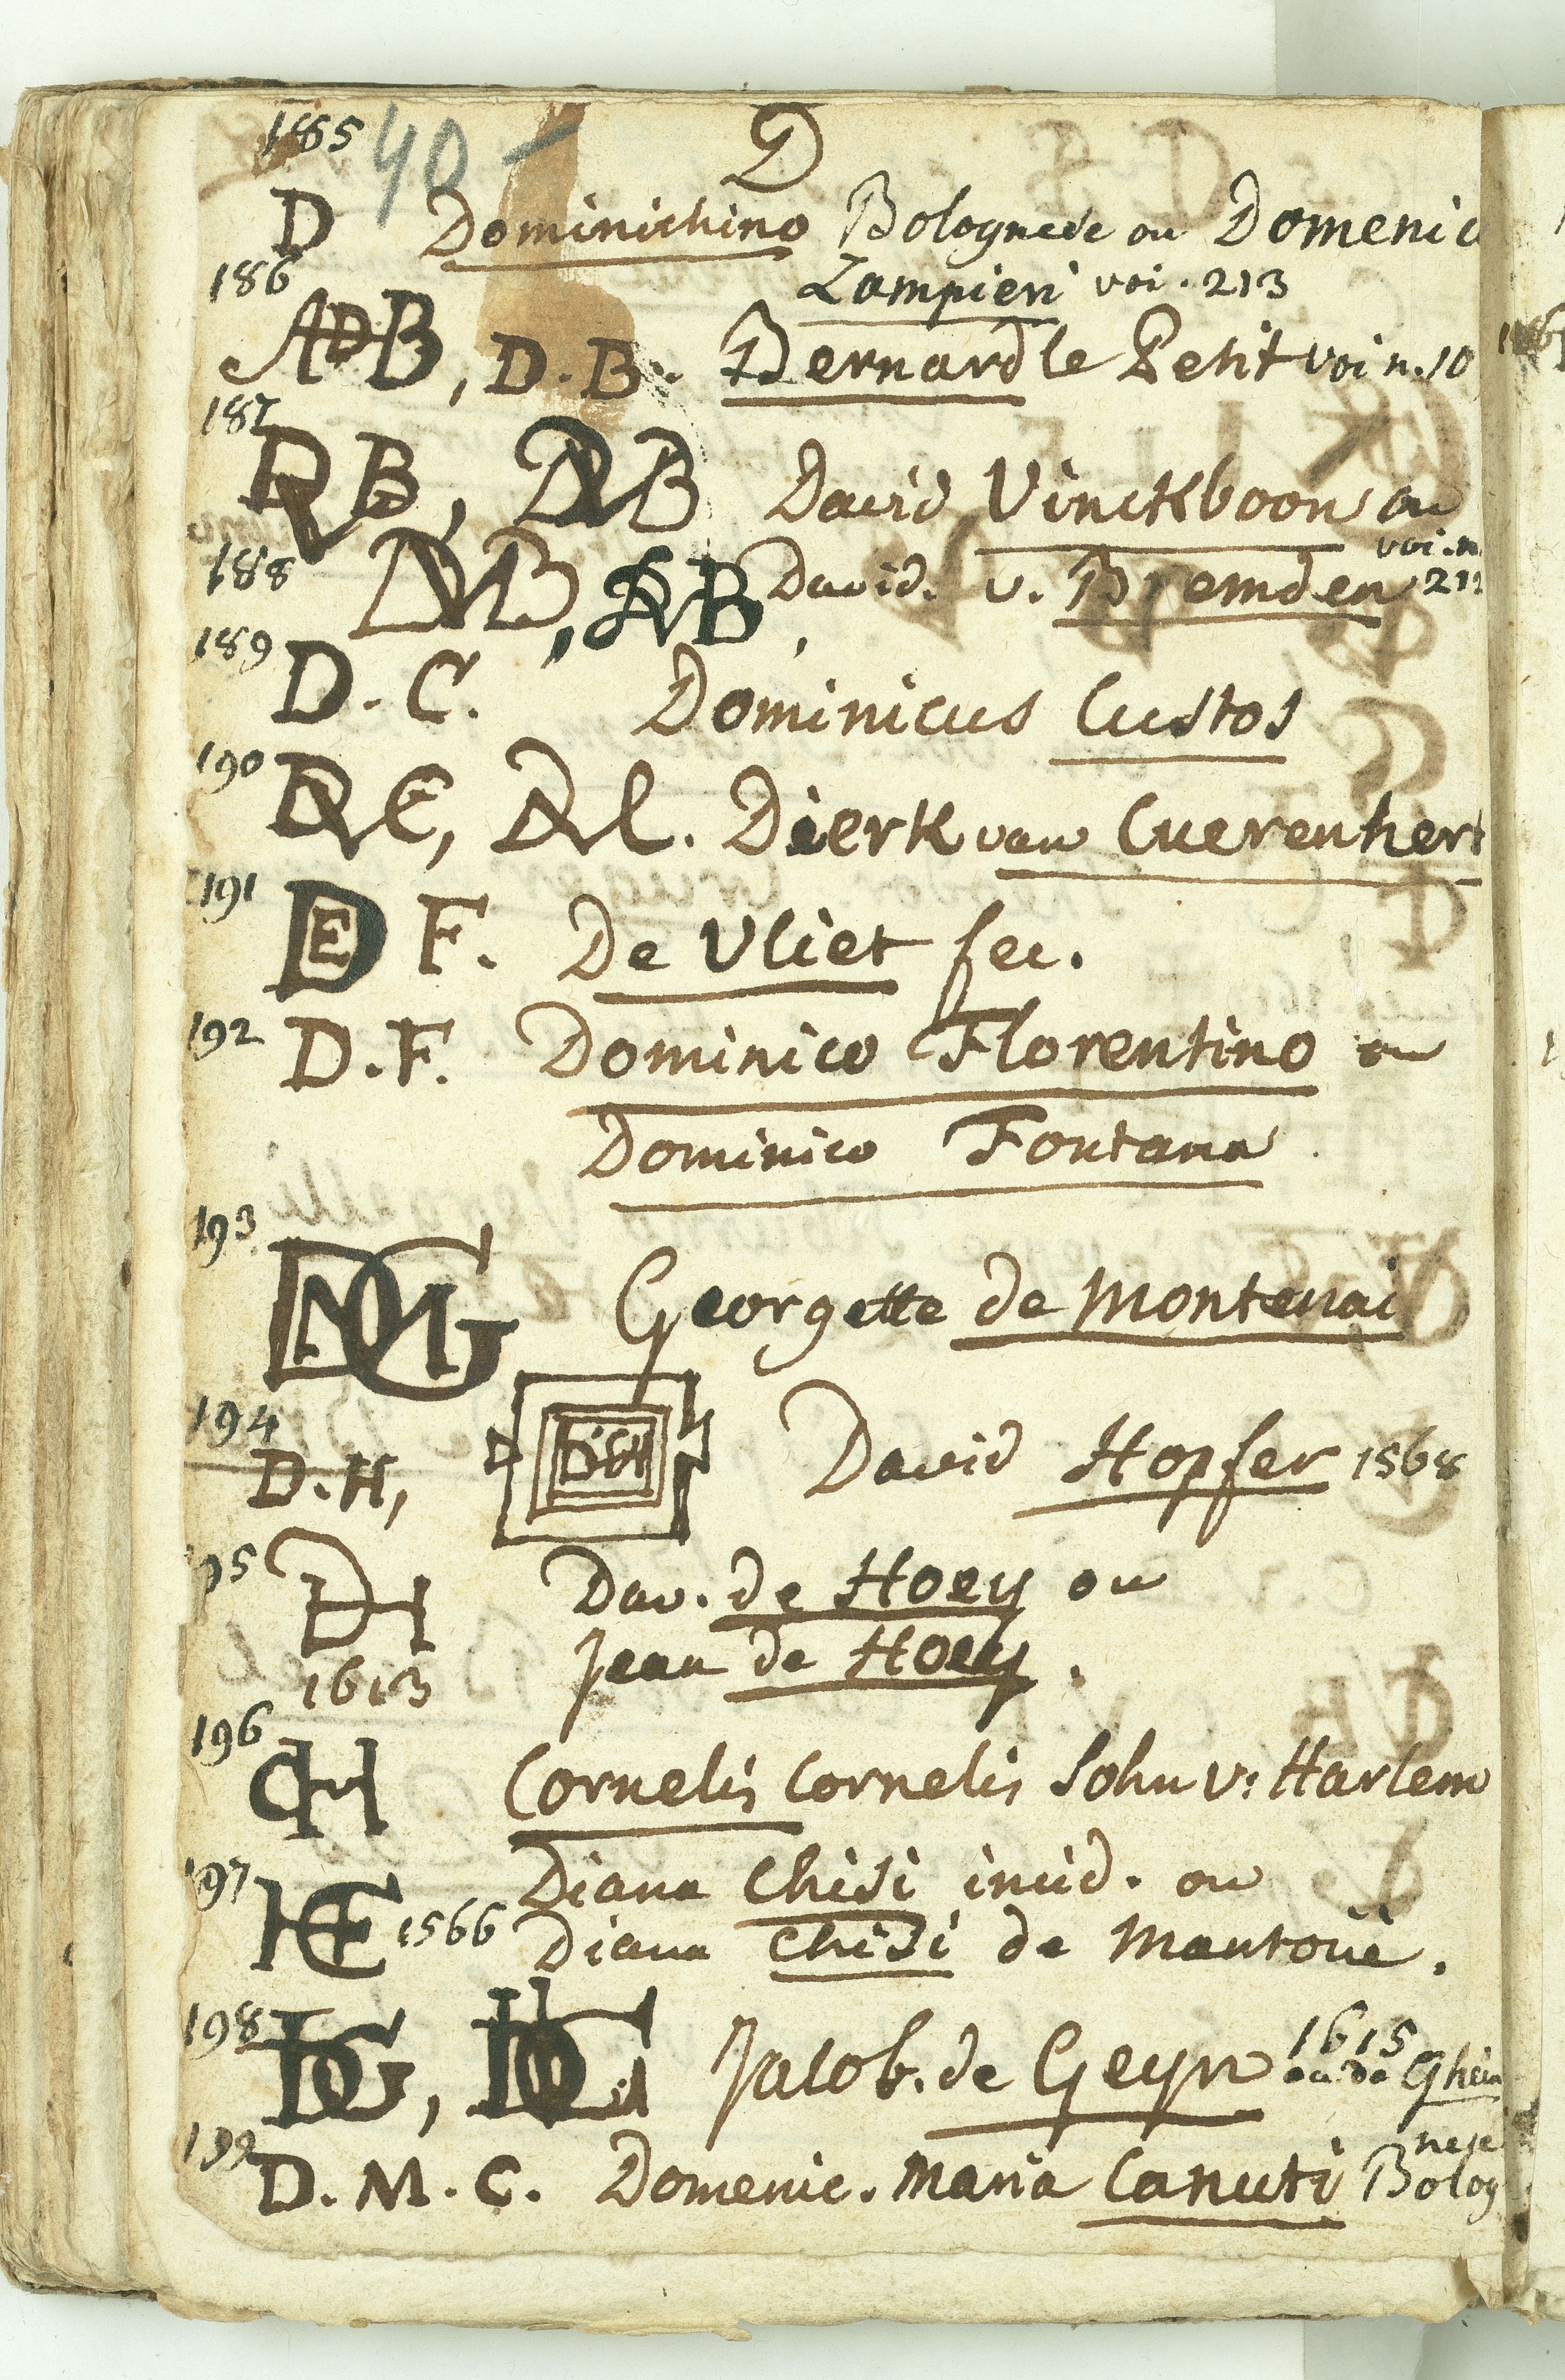 185 40 — D
D Dominichino Bolognese ou Domenic
Zampieri voi. 213
186 ADB, D.B. Bernard le Petit voi n. 10
187 DVB, DVB David Vinckboon ou
188 DVB, DVB, David. v. Bremden voi. n. 211
189 D. C. Dominicus Custos
190 DVC, DVC. Dierk van Cuerenhert
191 DE F. De Vliet fec.
192 D. F. Dominico Florentino ou
Dominico Fontana
193 DMG Georgette de Montenai
194 D. H, D.H David Hopfer 1568
195 DH Dav. de Hoey ou
1613 Jean de Hoey.
196 CH Cornelis Cornelis Sohn v: Harlem
197 Diana Chisi incid. ou
HCF 1566 Diana Chisi de Mantoüe.
198 IDG, IDG Jacob. de Geyn 1615 ou de Ghein
199 D. M. C. Domenic. Maria Canuti Bolog
nese